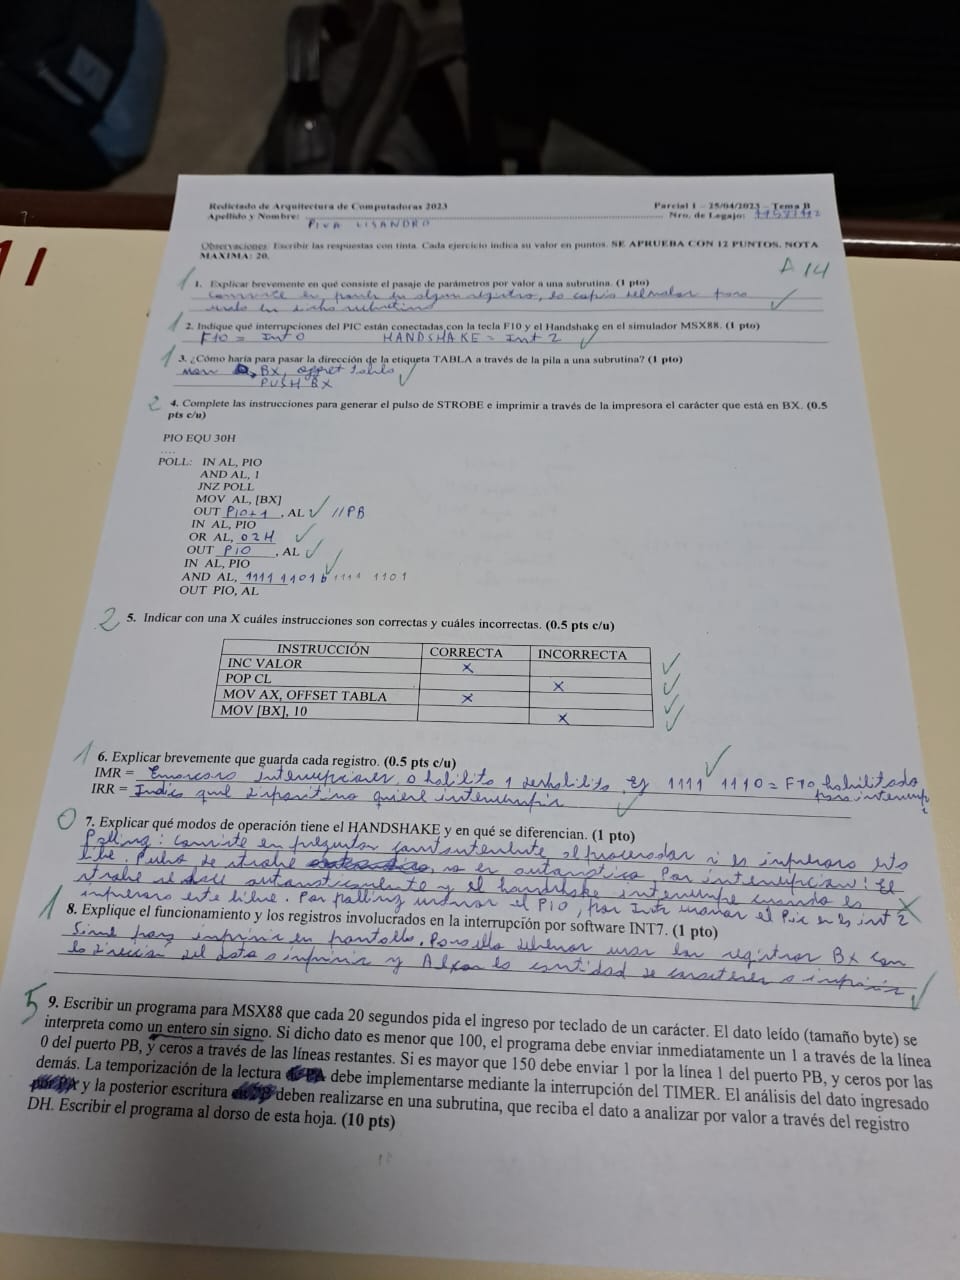 Redictado de Arquitectura de Computadoras 2023
Parcial 1 - 25/04/2023 - Tema B
Apellido y Nombre: PIVA LISANDRO
Nro. de Legajo:
Observaciones: Escribir las respuestas con tinta. Cada ejercicio indica su valor en puntos. SE APRUEBA CON 12 PUNTOS. NOTA
MAXIMA: 20.
A 14
1 1. Explicar brevemente en qué consiste el pasaje de parámetros por valor a una subrutina. (1 pto)
Consiste en en algun registro, la copia del valor para
en dicha subrutina
1 2. Indique qué interrupciones del PIC están conectadas con la tecla F10 y el Handshake en el simulador MSX88. (1 pto)
F10 = Int 0 HANDSHAKE = Int 2
1 3. ¿Cómo haría para pasar la dirección de la etiqueta TABLA a través de la pila a una subrutina? (1 pto)
Mov BX, offset tabla
PUSH BX
2 4. Complete las instrucciones para generar el pulso de STROBE e imprimir a través de la impresora el carácter que está en BX. (0.5
pts c/u)
PIO EQU 30H
....
POLL: IN AL, PIO
AND AL, 1
JNZ POLL
MOV AL, [BX]
OUT PIO+1, AL //PB
IN AL, PIO
OR AL, 02H
OUT PIO, AL
IN AL, PIO
AND AL, 1111 1101 b 1111 1101
OUT PIO, AL
2 5. Indicar con una X cuáles instrucciones son correctas y cuáles incorrectas. (0.5 pts c/u)
INSTRUCCIÓN CORRECTA INCORRECTA
INC VALOR X
POP CL X
MOV AX, OFFSET TABLA X
MOV [BX], 10 X
1 6. Explicar brevemente que guarda cada registro. (0.5 pts c/u)
IMR = Enmascara interrupciones, 0 habilita 1 deshabilita. Ej 1111 1110 = F10 habilitado
para interrump
IRR = Indica qué dispositivo quiere interrumpir
0 7. Explicar qué modos de operación tiene el HANDSHAKE y en qué se diferencian. (1 pto)
Polling: consiste en preguntar constantemente al procesador si la impresora esta
libre. Pulso de strobe no es automatico. Por interrupcion: El
strobe se hace automaticamente y el handshake interrumpe cuando la
impresora este libre. Por polling usamos el PIO, por Intr usamos el Pic en la int 2
1 8. Explique el funcionamiento y los registros involucrados en la interrupción por software INT7. (1 pto)
Sirve para imprimir en pantalla. Para ello debemos usar los registros Bx con
la direccion del dato a imprimir y Al con la cantidad de caracteres a imprimir
5 9. Escribir un programa para MSX88 que cada 20 segundos pida el ingreso por teclado de un carácter. El dato leído (tamaño byte) se
interpreta como un entero sin signo. Si dicho dato es menor que 100, el programa debe enviar inmediatamente un 1 a través de la línea
0 del puerto PB, y ceros a través de las líneas restantes. Si es mayor que 150 debe enviar 1 por la línea 1 del puerto PB, y ceros por las
demás. La temporización de la lectura debe implementarse mediante la interrupción del TIMER. El análisis del dato ingresado
y la posterior escritura deben realizarse en una subrutina, que reciba el dato a analizar por valor a través del registro
DH. Escribir el programa al dorso de esta hoja. (10 pts)